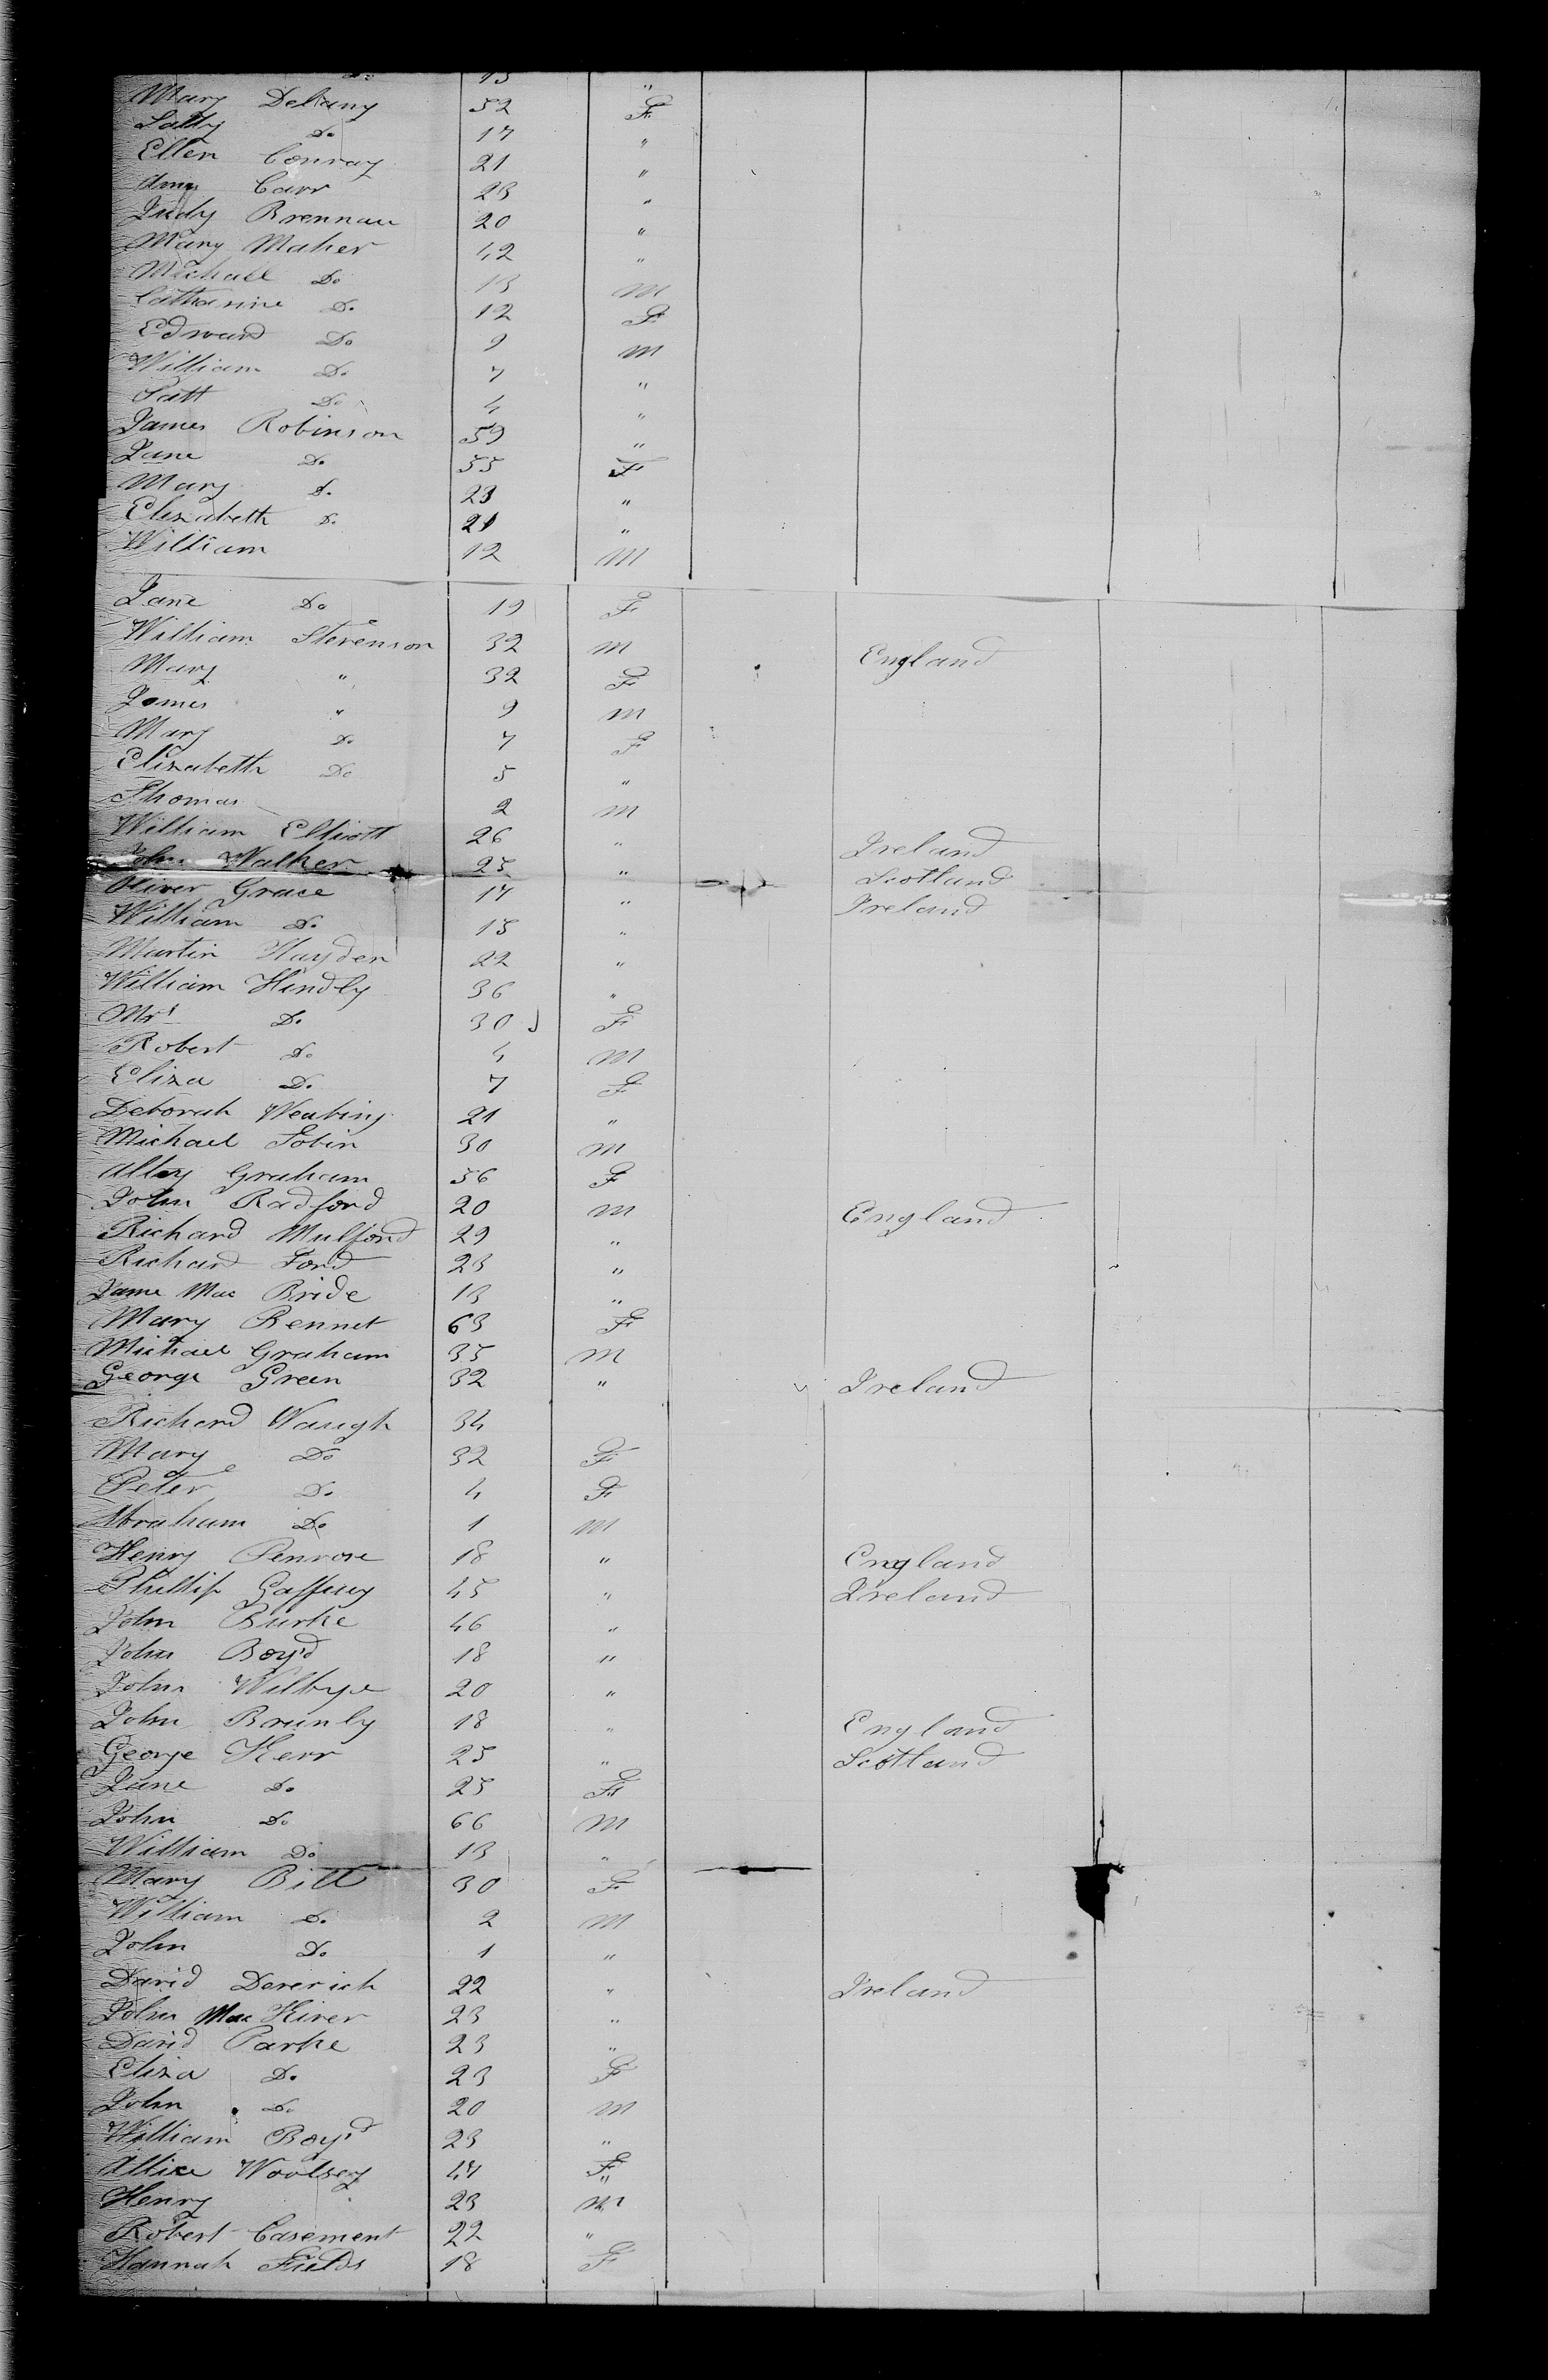 Do 13 "
Mary Delany 52 F
Sally Do 17 "
Ellen Conray 21 "
Amy Carr 23 "
Judy Brennan 20 "
Mary Maher 42 "
Michael Do 13 M
Catharine Do 12 F
Edward Do 9 M
William Do 7 "
Patt Do 4 "
James Robinson 59 "
Jane Do 55 F
Mary Do 23 "
Elizabeth Do 21 "
William 12 M
Jane Do 19 F
William Stevenson 32 M England
Mary " 32 F
James " 9 M
Mary Do 7 F
Elizabeth Do 5 "
Thomas 2 M
William Elliott 26 " Ireland
John Walker 25 " Scotland
Oliver Grace 17 " Ireland
William Do 15 "
Martin Hayden 22 "
William Hindly 36 "
Mrs Do 30 F
Robert Do 4 M
Eliza Do 7 F
Deborah 21 "
Michael Tobin 30 M
Alley Graham 56 F
John Radford 20 M England
Richard Mulford 29 "
Richard Ford 23 "
Jame Mac Bride 13 "
Mary Bennet 63 F
Michael Graham 35 M
George Green 32 " Ireland
Richard Waugh 34
Mary Do 32 F
Peter Do 4 F
Abraham Do 1 M
Henry Penrose 18 " England
Phillip Gaffney 45 " Ireland
John Burke 46 "
John Boyd 18 "
John Wilhye 20 "
John Brunly 18 " England
George Kerr 25 " Scotland
Jane Do 25 F
John Do 66 M
William Do 13 "
Mary Bill 30 F
William Do 2 M
John Do 1 "
David Dererich 22 " Ireland
John Mac Kiver 23 "
David Parke 23 "
Eliza Do 23 F
John Do 20 M
William Boyd 23 "
Allice Woolsey 47 F
Henry " 23 M
Robert Casement 22 "
Hannah Fields 18 F